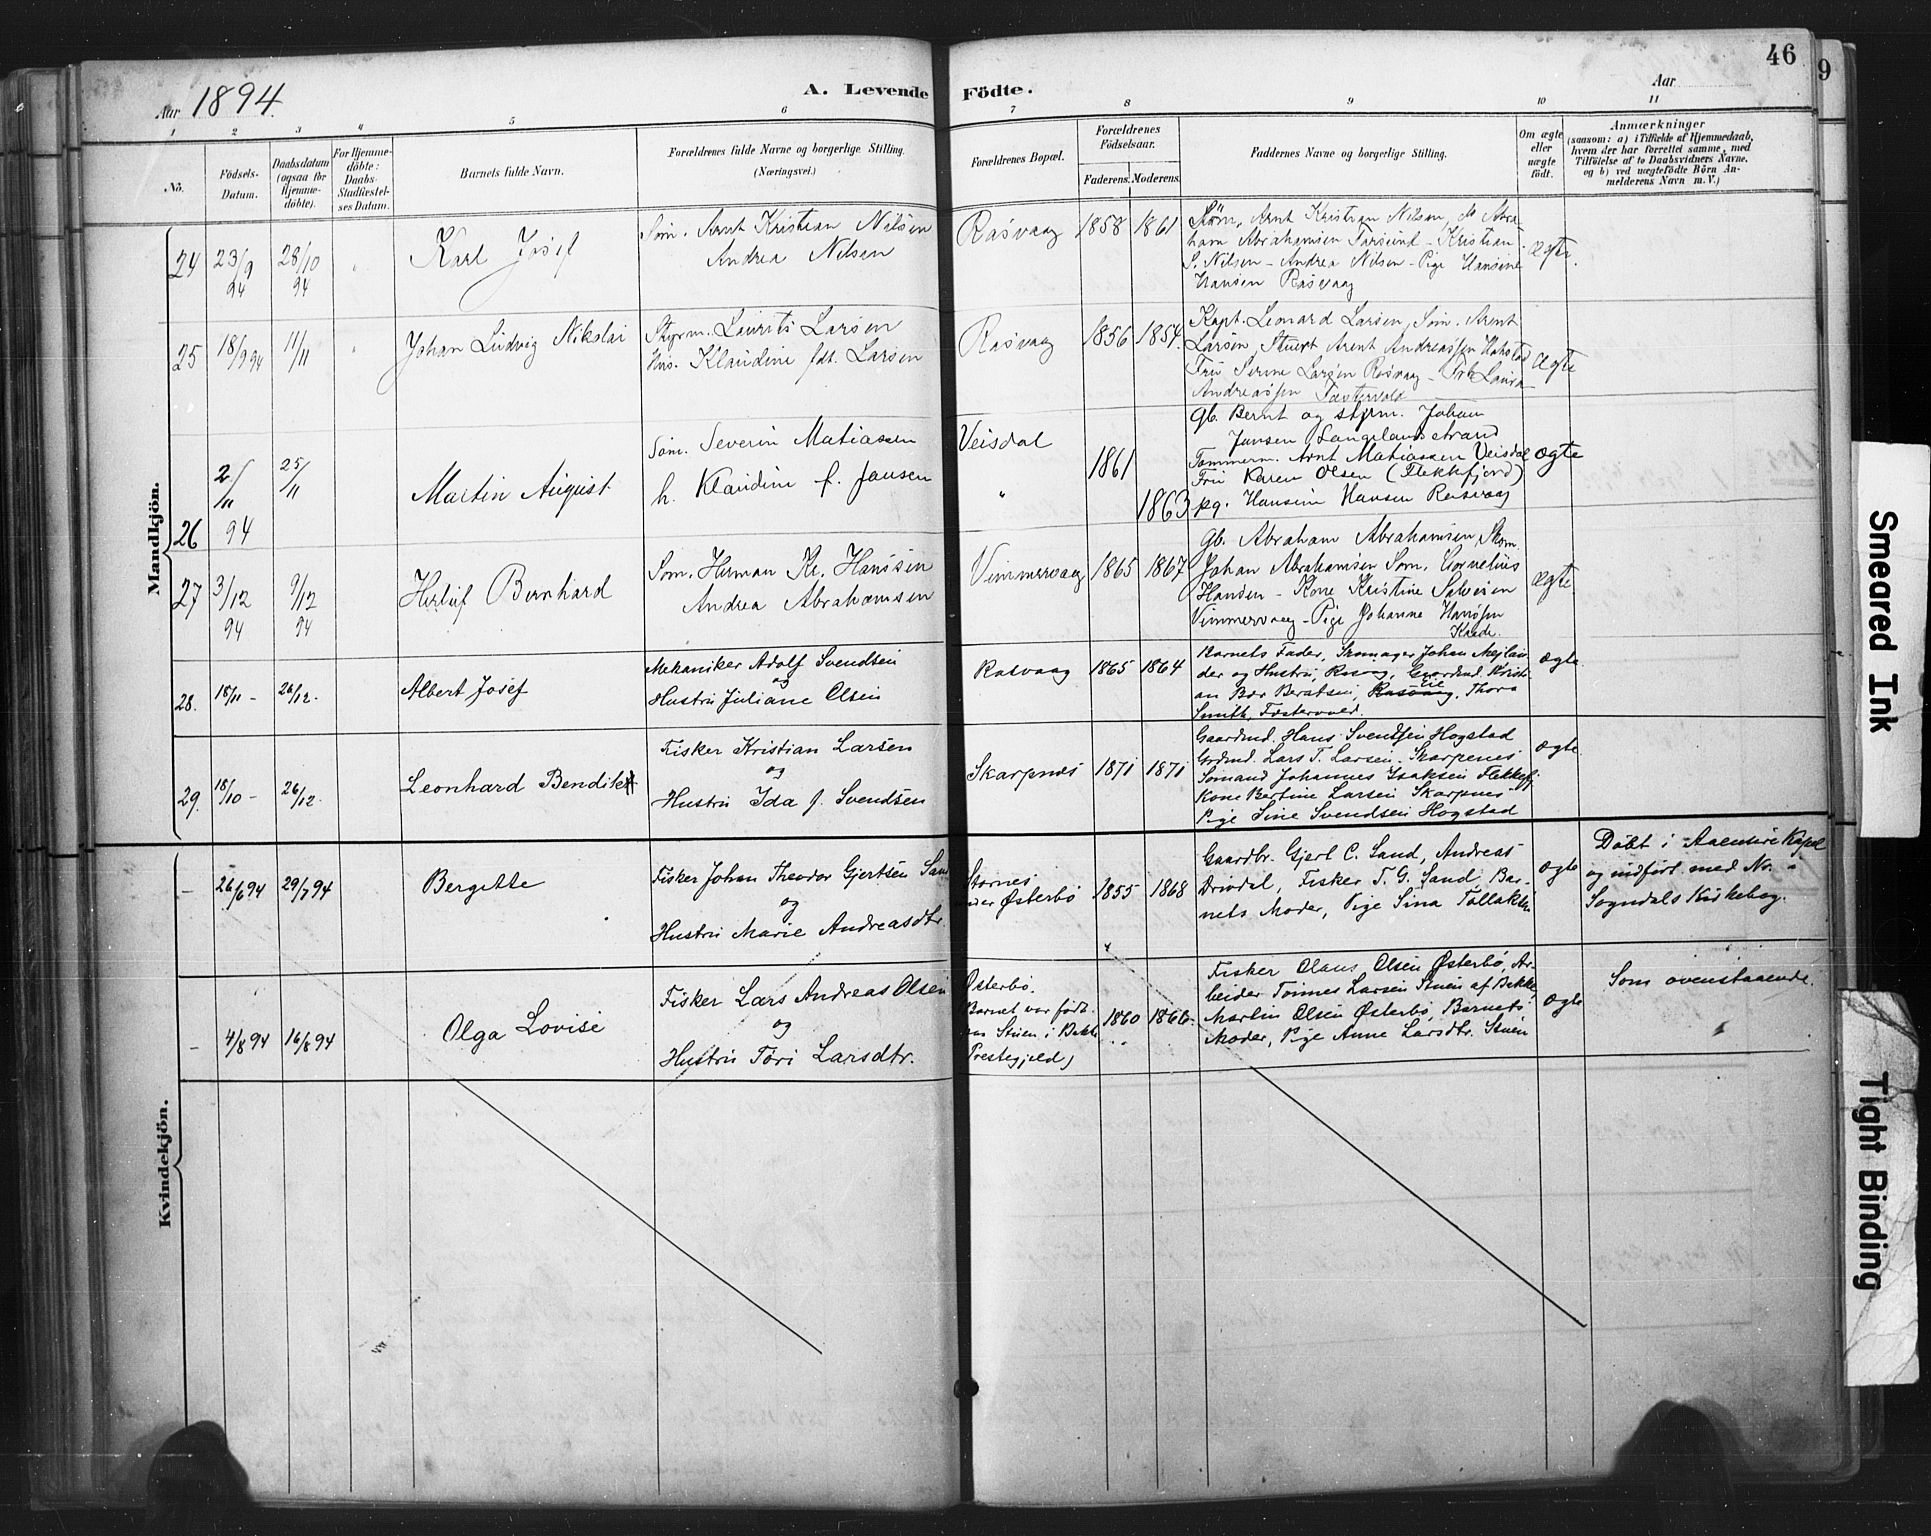 46
9
Aar 1894.
A. Levende Födte.
Aar
1 2 3 4 5 6 7 8 9 10 11
No.
Födsels-Datum.
Daabsdatum (ogsaa for Hjemme-döbte).
For Hjemme-döbte: Daabs-Stadfæstel-ses Datum.
Barnets fulde Navn.
Forældrenes fulde Navne og borgerlige Stilling. (Næringsvei.)
Forældrenes Bopæl.
Forældrenes Födselsaar.
Faderens. Moderens.
Faddernes Navne og borgerlige Stilling.
Om ægte eller uægte födt.
Anmærkninger
(saasom: a) i Tilfælde af Hjemmedaab,
hvem der har forrettet samme, med
Tilföielse af to Daabsvidners Navne,
og b) ved uægtefödte Börn An-
melderens Navn m.V.)
Mandkjön.
24 23/9 94 28/10 94 " Karl Josef
Søm. Arnt Kristian Nilsen
Andrea Nilsen
Rasvaag 1858 1861
Arnt Kristian Nilsen,
ham Abrahamsen Farsund - Kristian
S. Nilsen - Andrea Nilsen - Pige Hansine
Hansen Rasvaag
Ægte.
25 18/9 94 11/11 " Johan Ludvig Nikolai
Styrm. Laurits Larsen
Hus. Klaudine fdt. Larsen
Rasvaag 1856 1854.
Kapt. Leonard Larsen, Søm. Arent
Larsen, Stuert Arent Andreassen
Fru Serine Larsen Rasvaag - Laura
Andreassen Fæstervold
Ægte
26 2/11 94 25/11 Martin August
Søm. Severin Matiassen
h. Klaudine f. Jansen
Veisdal " 1861 1863
Gb. Bernt og styrm. Johan
Jansen Langelandsstrand
Tømmerm. Arnt Matiassen Veisdal
Fru Karen Olsen (Flekkefjord)
pg. Hansine Hansen Rasvaag
Ægte
27 3/12 94 9/12 94 Herluf Bernhard
Søm. Herman Kr. Hanssen
Andrea Abrahamsen
Vimmervaag 1865 1867
Gb. Abraham Abrahamsen, Skom.
Johan Abrahamsen Søm. Cornelius
Hansen - Kone Kristine Salvesen
Vimmervaag - Pige Johanne Hanssen
Kaade.
Ægte
28. 18/11 - 26/12. Albert Josef
Mekaniker Adolf Svendsen
og
Hustru Juliane Olsen
Rasvaag 1865 1864
Barnets Fader, Skomager Johan Mejlæn-
der og Hustru, Rasvaag, Gaardmd. Kristi-
an Boe Berntsen, Rasvaag, Thora
Smith, Fæstervold.
ægte
29. 18/10 - 26/12. Leonhard Bendik
Fisker Kristian Larsen
og
Hustru Ida f. Svendsen
Skarpnes 1871 1871
Gaardmd. Hans Svendsen Hogstad
Grdmd. Lars T. Larsen Skarpenes
Sømand Johannes Isaksen Flekkefj.
Kone Bertine Larsen Skarpnes
Pige Sine Svendsen Hogstad
ægte
Kvindekjön.
- 26/6 94 29/7 94 Bergitte
Fisker Johan Theodor Gjertsen Sand
og
Hustru Marie Andreasdtr.
Stornes
under Østerbø 1855 1868
Gaardbr. Gjert C. Sand, Andreas
Drivdal, Fisker T. G. Sand, Bar-
nets Moder, Pige Sina Tollaksen
ægte
Døbt i Aaensire Kapel
og indført med No. -
Sogndals Kirkebog.
- 4/8 94 16/8 94 Olga Lovise
Fisker Lars Andreas Olsen
og
Hustru Tori Larsdtr.
Østerbø.
Barnet var født
paa Stuen i Bakke
Prestegjeld) 1860 1866
Fisker Olaus Olsen Østerbø, Ar-
beider Tønnes Larsen Stuen af Bakke,
Martin Olsen Østerbø, Barnets
Moder, Pige Anne Larsdtr. Stuen
ægte
Som ovenstaaende.
Smeared Ink
Tight Binding